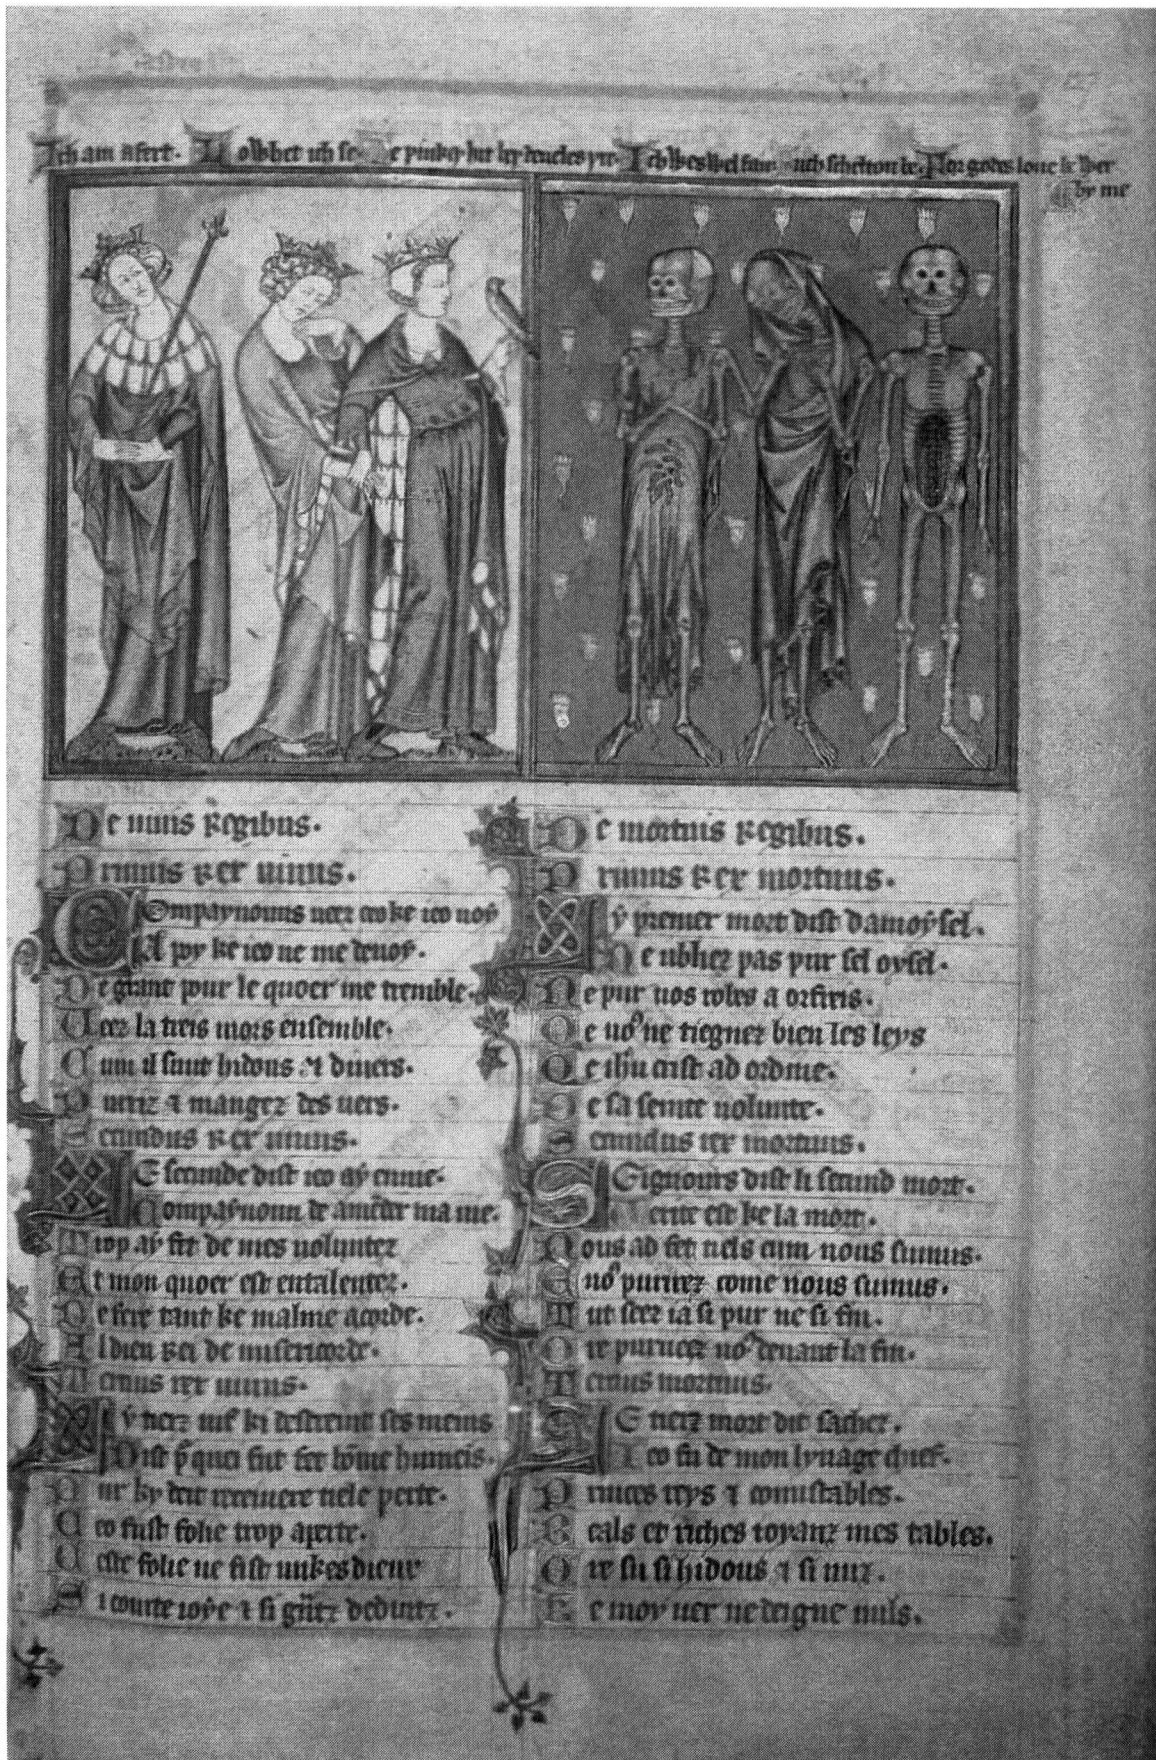 Ich am afert. Lo whet ich se. Me þinkes hit bey deueles þre. Ich wes wel fair. Such scheltou be. For godes loue be wer
by me
De uiuis Regibus.
Primus Rex uiuus.
Compaynouns ueez ceo ke ieo uoy
A poy ke ieo ne me deuoy.
De grant pour le quoer me tremble.
Veez la treis mors ensemble.
Cum il sunt hidous & diuers.
Purriz & mangez des uers.
Secundus Rex uiuus.
Le secunde dist ieo ay enuie.
Compaynoun de amender ma uie.
Trop ay fet de mes uoluntez
Et mon quoer est entalentez.
De fere tant ke malme acorde.
Al dieu Rei de misericorde.
Tercius rex uiuus.
Ly tierz uif ki destreint ses meins
Dist p quei fut fet home humeis.
Pur ky deit receiuere tiele perte.
Ceo fust folie trop aperte.
Ceste folie ne fist unkes dieux
Si courte ioye & si gnz deduitz.
De mortuis Regibus.
Primus Rex mortuus.
Ly premer mort dist damoysel.
Ne ubliez pas pur sel oysel.
Ne pur uos robes a orfreis.
Qe uo ne tiegnez bien les leys
Qe ihu crist ad ordine.
De sa seinte uolunte.
Secundus rex mortuus.
Signours dist li secund mort.
Verite est ke la mort.
Nous ad fet tiels cum nous sumus.
Et uo purrirez come nous sumus.
Tut seez ia si pur ne si fin.
Ore purueez uo deuant la fin.
Tercius mortuus.
Le tierz mort dit sachez.
Ieo fu de mon lynage chief.
Princes reys & conustables.
Beals et riches ioyanz mes tables.
Ore su si hidous & si nuz.
Ke moy uer ne deigne nuls.